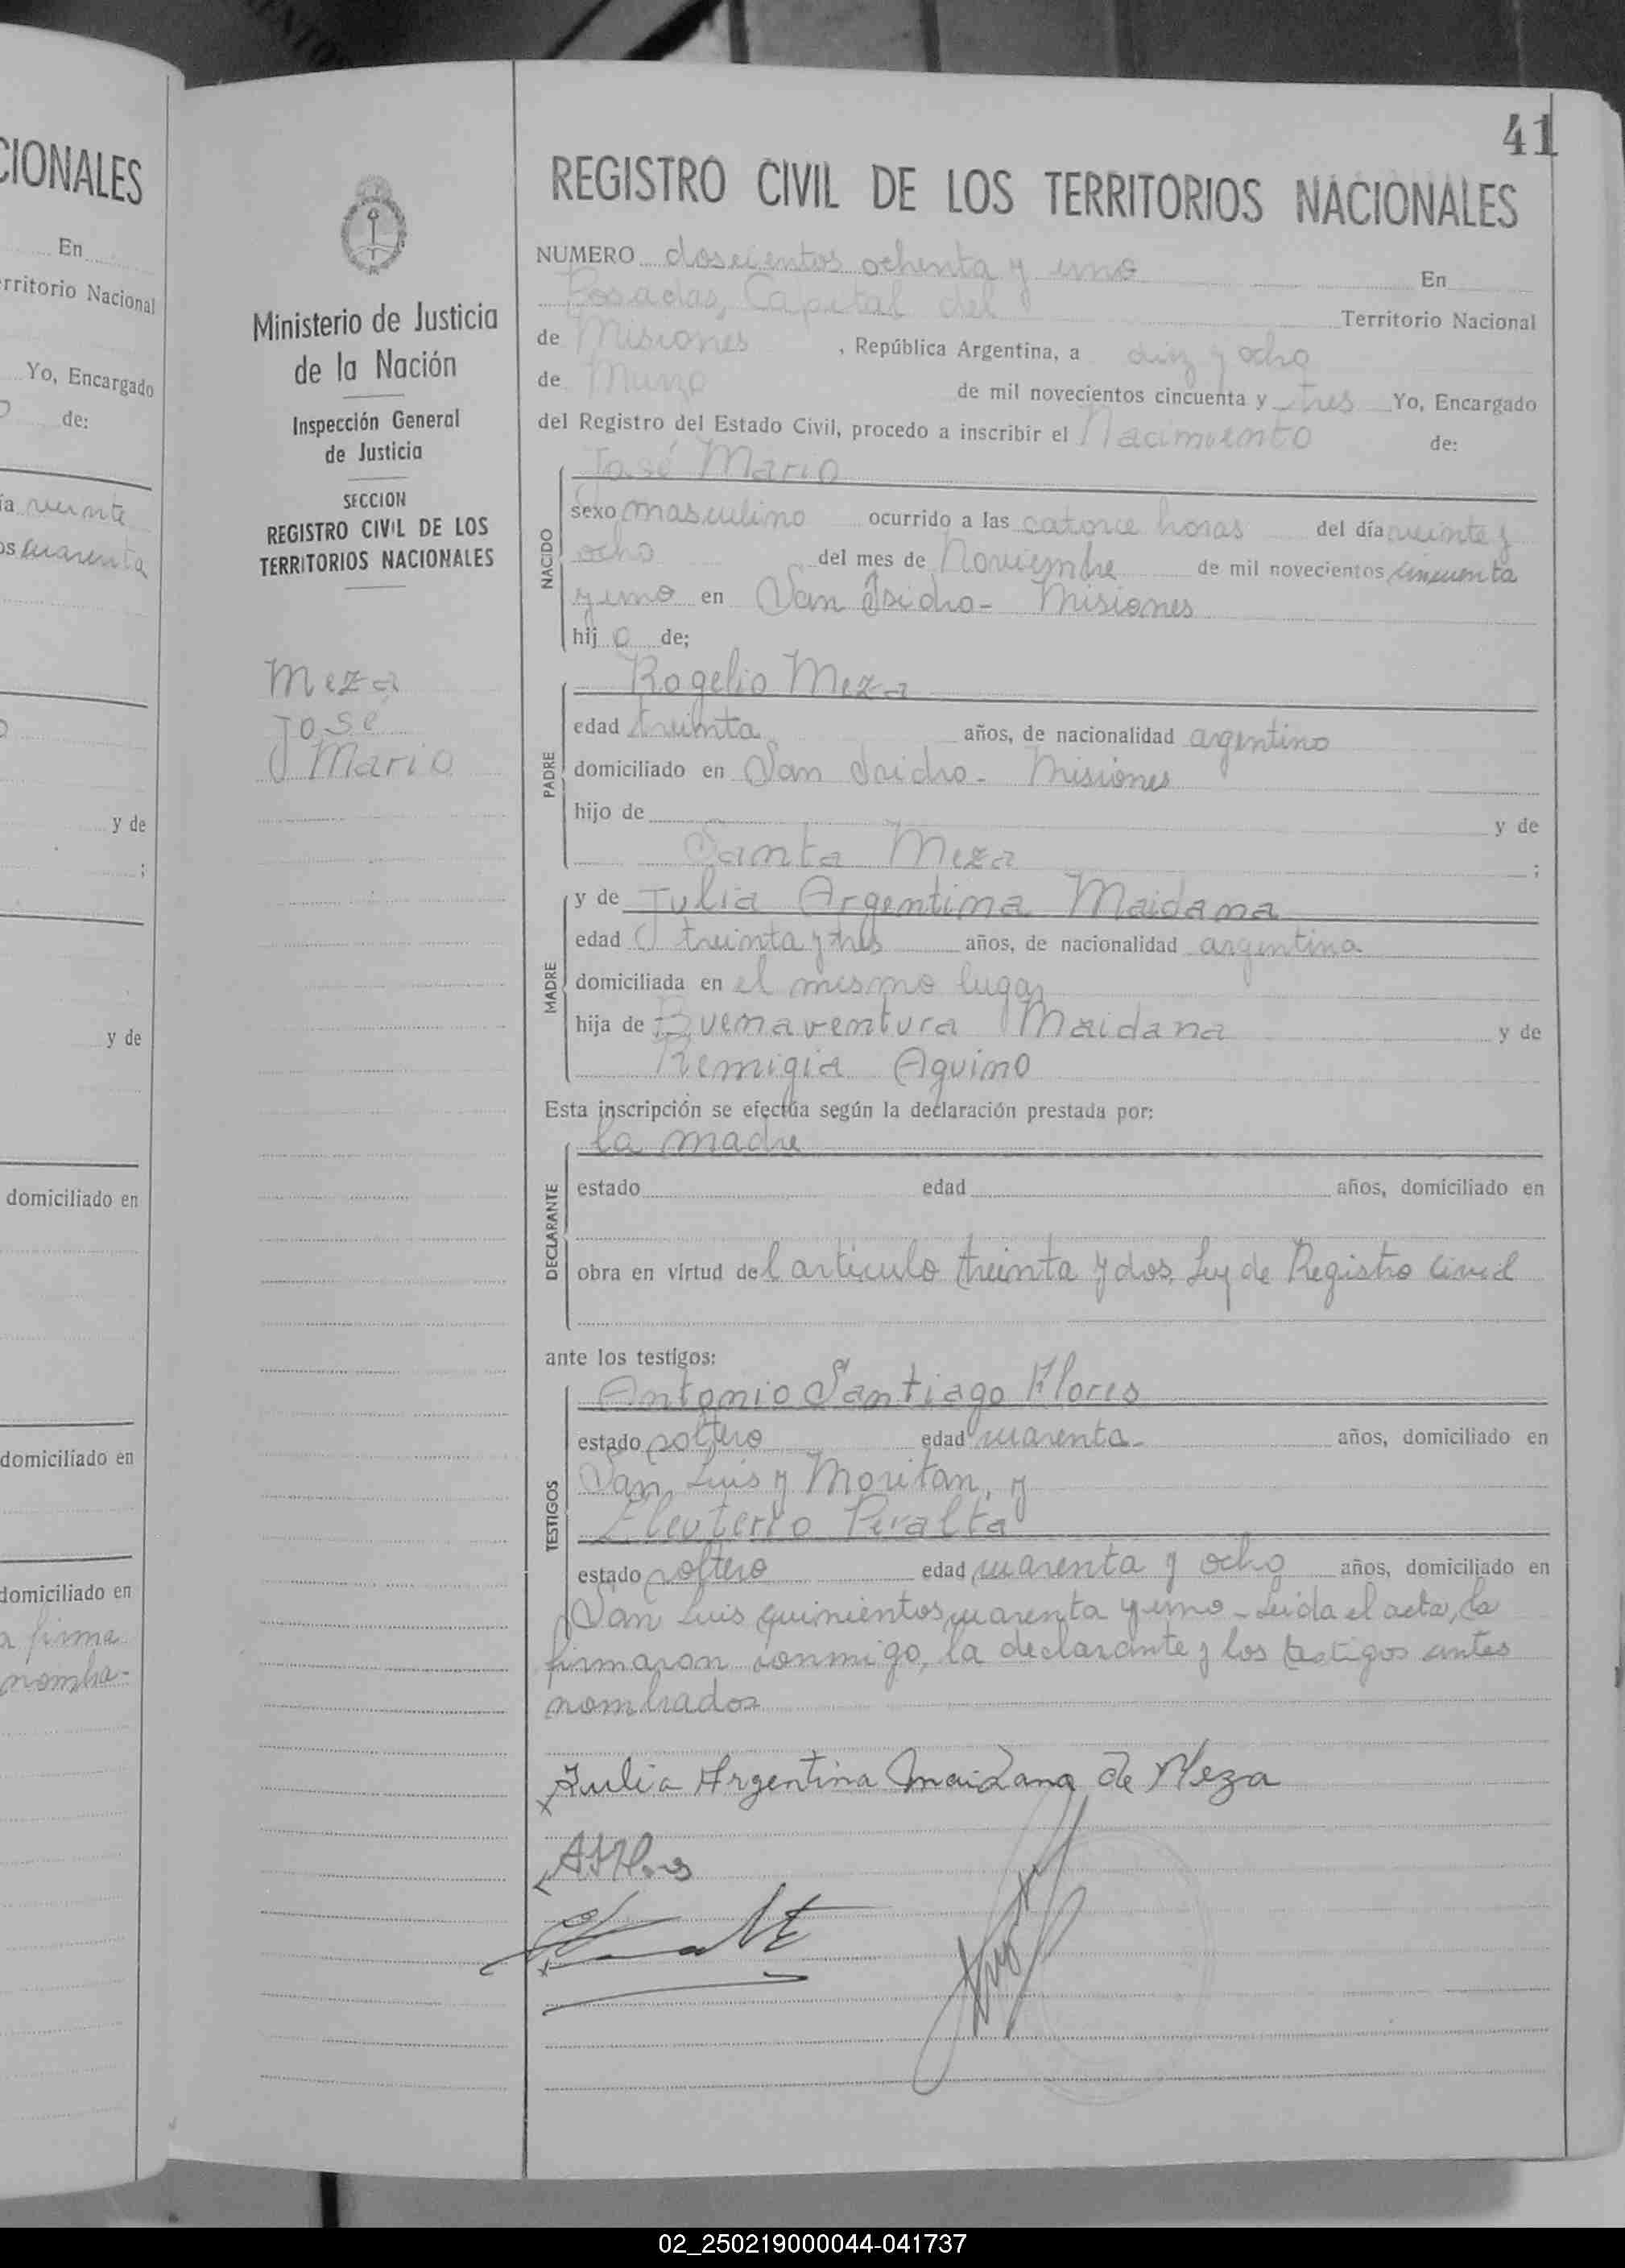 CIONALES
En
erritorio Nacional
Yo, Encargado
de:
ía veinte
os cuarenta
y de
;
y de
domiciliado en
domiciliado en
domiciliado en
a firma
nombra-
Ministerio de Justicia
de la Nación
Inspección General
de Justicia
SECCION
REGISTRO CIVIL DE LOS
TERRITORIOS NACIONALES
Meza
José
Mario
41
REGISTRO CIVIL DE LOS TERRITORIOS NACIONALES
NUMERO doscientos ochenta y uno En
Posadas, Capital del Territorio Nacional
de Misiones , República Argentina, a diez y ocho
de Marzo de mil novecientos cincuenta y tres Yo, Encargado
del Registro del Estado Civil, procedo a inscribir el Nacimiento de:
José Mario
NACIDO
sexo masculino ocurrido a las catorce horas del día veinte y
ocho del mes de Noviembre de mil novecientos cincuenta
y uno en San Isidro - Misiones
hijo de;
PADRE
Rogelio Meza
edad treinta años, de nacionalidad argentino
domiciliado en San Isidro - Misiones
hijo de y de
Santa Meza ;
MADRE
y de Julia Argentina Maidana
edad treinta y tres años, de nacionalidad argentina
domiciliada en el mismo lugar
hija de Buenaventura Maidana y de
Remigia Aquino
Esta inscripción se efectúa según la declaración prestada por:
DECLARANTE
la madre
estado edad años, domiciliado en
obra en virtud del artículo treinta y dos, Ley de Registro Civil
ante los testigos:
TESTIGOS
Antonio Santiago Flores
estado soltero edad cuarenta - años, domiciliado en
San Luis y Moritan, y
Eleuterio Peralta
estado soltero edad cuarenta y ocho años, domiciliado en
San Luis quinientos cuarenta y uno - Leida el acta, la
firmaron conmigo, la declarante y los testigos antes
nombrados
Julia Argentina Maidana de Meza
ASFlores
02_250219000044-041737